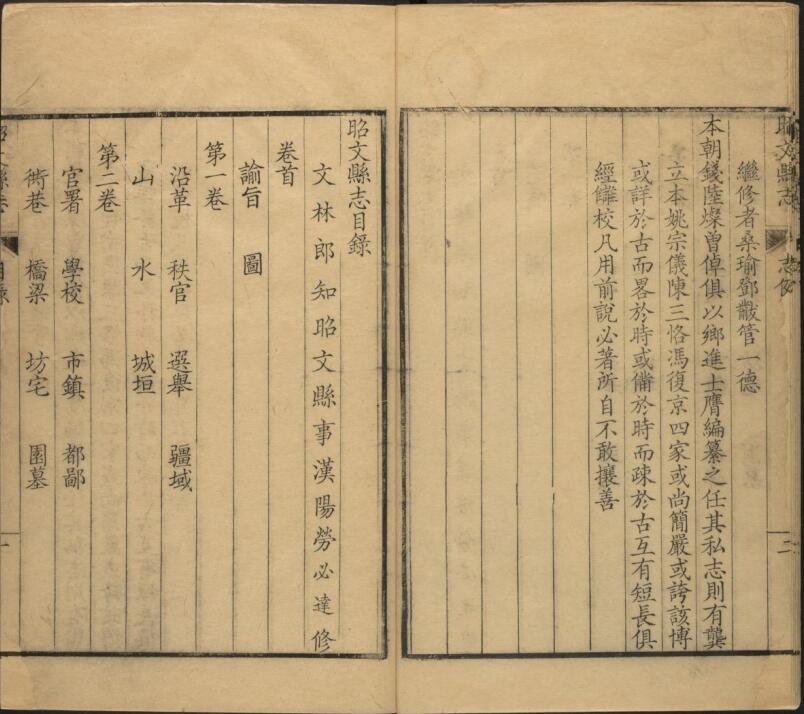 昭文縣志
志例
二
繼修者桑瑜鄧韍管一德
本朝錢陸燦曾倬俱以鄉進士膺編纂之任其私志則有龔
立本姚宗儀陳三恪馮復京四家或尚簡嚴或誇該博
或詳於古而畧於時或備於時而疎於古互有短長俱
經讎校凡用前說必著所自不敢攘善
昭文縣志目錄
文林郎知昭文縣事漢陽勞必達修
卷首
諭旨 圖
第一卷
沿革 秩官 選舉 疆域
山 水 城垣
第二卷
官署 學校 市鎮 都鄙
衖巷 橋梁 坊宅 園墓
昭文縣志
目錄
一